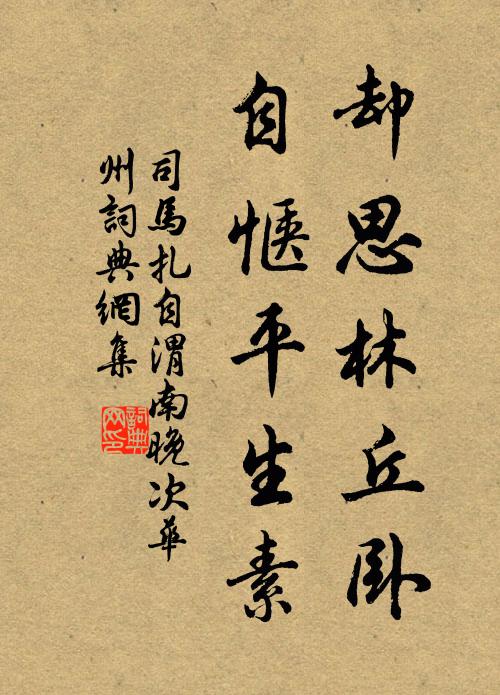 却思林丘卧
自惬平生素
司馬扎自渭南晚次華
州詞典網集
詞典
网印